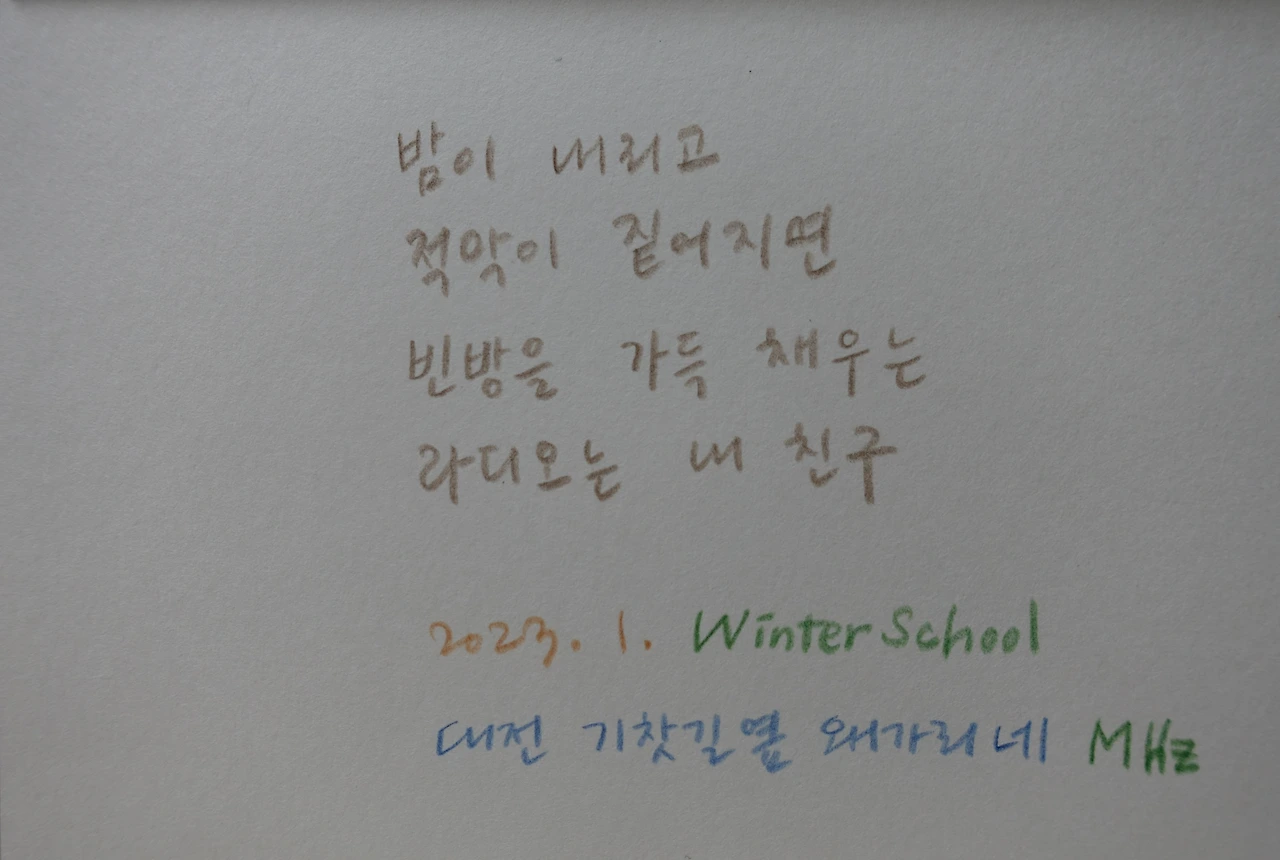 밤이 내리고
적막이 짙어지면
빈방을 가득 채우는
라디오는 내 친구
2023. 1. Winter School
대전 기찻길옆 왜가리네 MHz